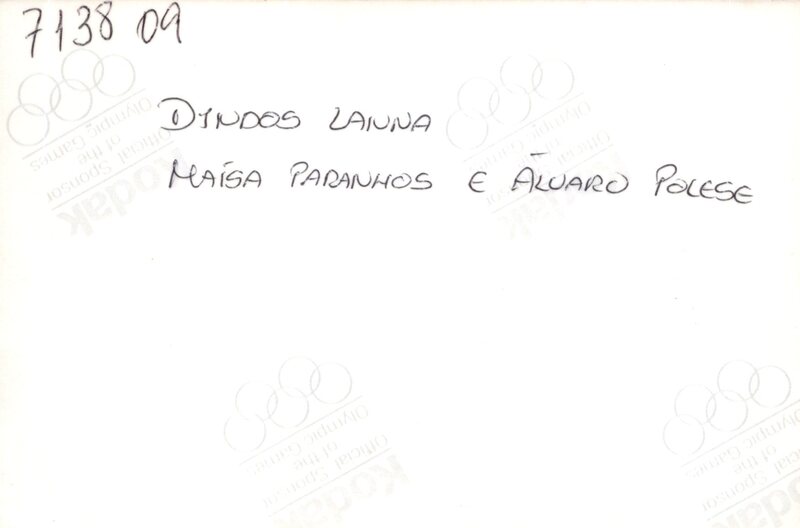 7138 09
DINDOS LANNA
MAÍSA PARANHOS E ÁLVARO POLESE
Kodak
Official Sponsor
of the
Olympic Games
Kodak
Official Sponsor
of the
Olympic Games
Kodak
Official Sponsor
of the
Olympic Games
Kodak
Official Sponsor
of the
Olympic Games